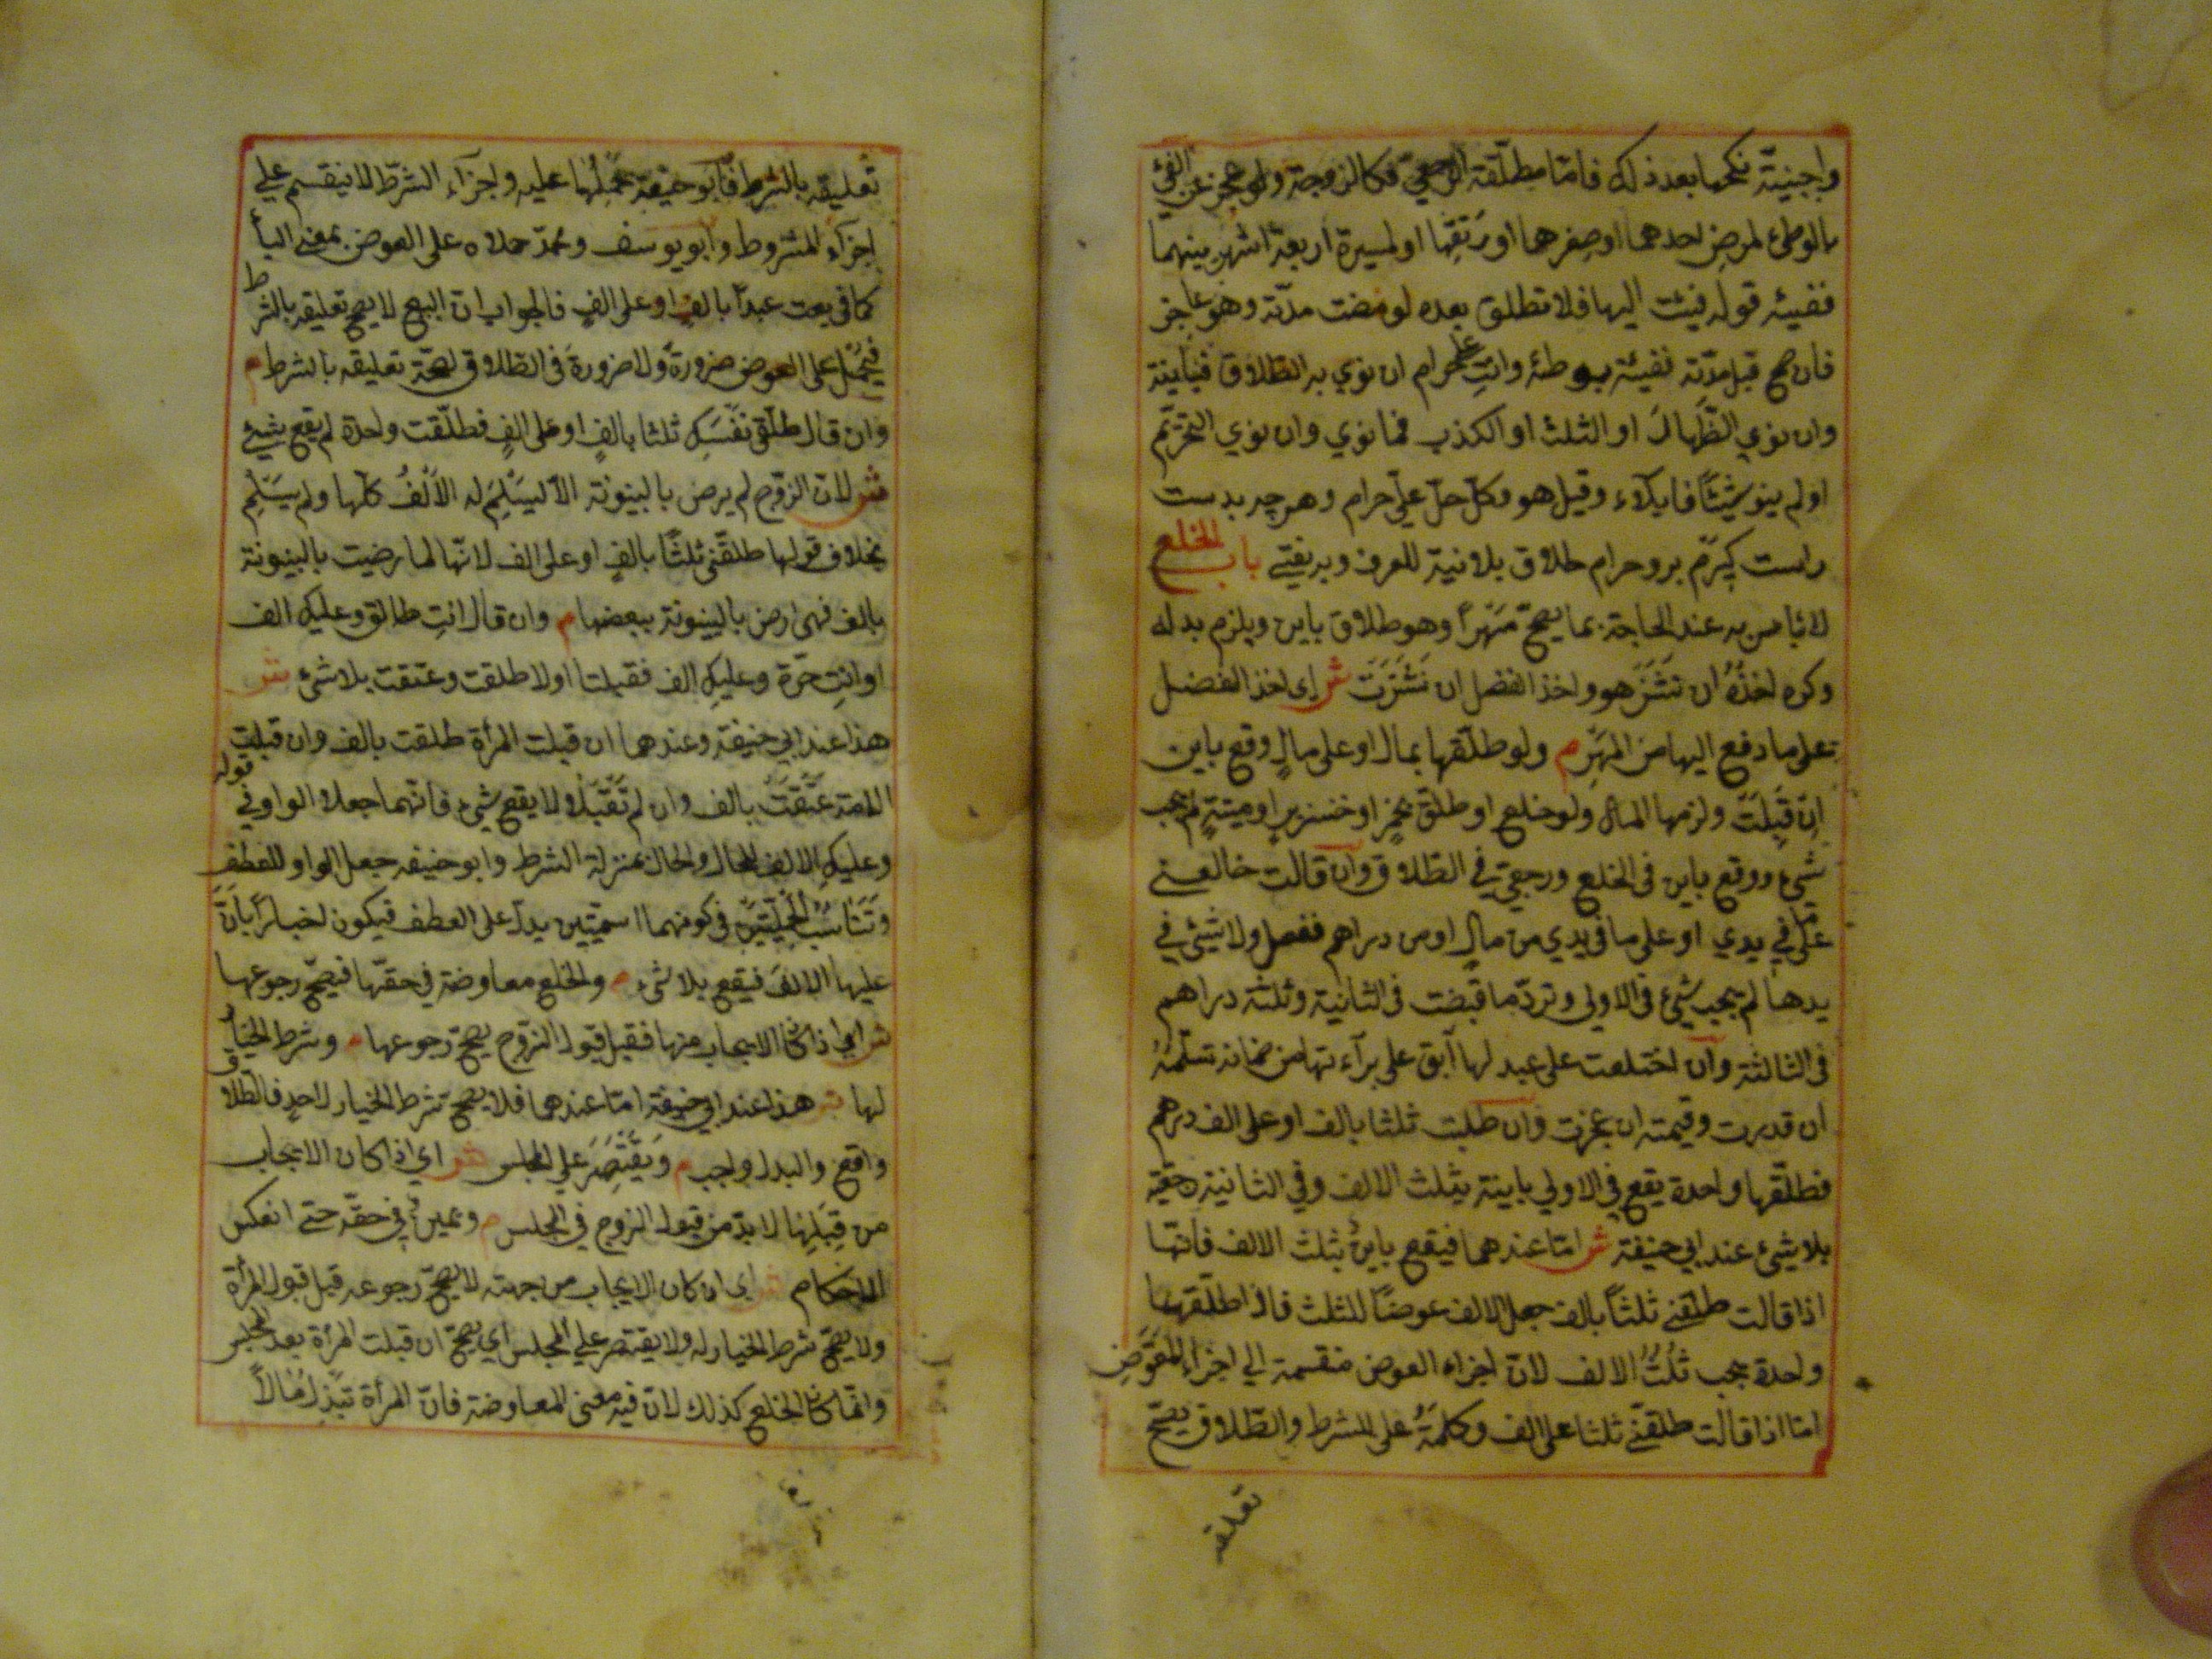 واجنبيّة نكحها بعد ذلك فامّا مطلّقة الرجعيّ فكالزوجة ولو عجز عن الفئ
بالوطئ لمرض احدهما او صغرهما او رتقها او لمسيرة اربعة اشهر بينهما
ففيئه قوله فئت اليها فلا تطلق بعده لو مضت مدّته وهو عاجز
فان صح قبل مدّته ففيئه بوطئه وانتِ علىّ حرام ان نوي به الطلاق فباينة
وان نوي الظّهار او الثلث او الكذب فما نوي وان نوي التحريم
او لم ينو شيئًا فايلاء وقيل هو وكلّ حلّ عليّ حرام وهرچه بدست
راست كيرم بروحرام طلاق بلا نية للعرف وبه يفتي باب الخلع
لا بأس به عند الحاجة بما يصحّ مهرًا وهو طلاق باين ويلزم بدله
وكره اخذه ان نشز هو واخذ الفضل ان نشزت ش اي اخذ الفضل
على ما دفع اليها من المهر م ولو طلّقها بمال او على مال وقع باين
ان قبلت ولزمها المال ولو خلع او طلّق بخمر او خنزير او ميتة لم يجب
شيء ووقع باين في الخلع ورجعيّ في الطلاق وان قالت خالعني
على ما في يدي او على ما في يدي من مال او من دراهم ففعل ولا شيئ في
يدها لم يجب شيء في الاولي وتردّ ما قبضت في الثانية وثلثة دراهم
في الثالثة وان اختلعت على عبد لها آبق على براءتها من ضمانه تسلّمه
ان قدرت وقيمته ان عجزت وان طلبت ثلثا بالف او على الف درهم
فطلّقها واحدة يقع في الاولي باينة بثلث الالف وفي الثانية رجعيّة
بلا شيئ عند ابي حنيفة ش امّا عندهما فيقع باين بثلث الالف فانّها
اذا قالت طلّقني ثلثًا بالف جعل الالف عوضًا للثلث فاذا طلّقها
واحدة يجب ثلث الالف لانّ اجزاء العوض منقسمة الي اجزاء المعوّض
امّا اذا قالت طلّقني ثلثا على الف وكلمة على للشرط والطّلاق يصحّ
تعليقه
تعليقه بالشرط فابو حنيفة حملها عليه واجزاء الشرط لا ينقسم علي
اجزاء المشروط وابو يوسف ومحمّد حملاه على العوض بمعنى الباء
كما في بعت عبدًا بالف او على الف فالجواب انّ البيع لا يصحّ تعليقه بالشرط
فيحمل على العوض ضرورة ولا ضرورة في الطلاق لصحّة تعليقه بالشرط م
وان قال طلّقى نفسكِ ثلثا بالف او على الف فطلّقت واحدة لم يقع شيئ
ش لانّ الزوج لم يرض بالبينونة الّا ليسلم له الالف كلّها ولم يسلم
بخلاف قولها طلّقنى ثلثًا بالف او على الف لانّها لما رضيت بالبينونة
بالف فهى ارضى بالبينونة ببعضها م وان قال انتِ طالق وعليكِ الف
او انتِ حرّة وعليكِ الف فقبلتا او لا طلقت وعتقت بلا شئ ش
هذا عند ابي حنيفة وعندهما ان قبلت المرأة طلقت بالف وان قبلت
الامة عتقت بالف وان لم تقبلا لا يقع شيء فانّهما جعلا الواو في قوله
وعليكِ الالف للحال والحال بمنزلة الشرط وابو حنيفه جعل الواو للعطف
وتناسب الجملتين في كونهما اسميّتين يدلّ على العطف فيكون اخبارًا بانّ
عليها الالف فيقع بلا شئ م والخلع معاوضة في حقّها فيصحّ رجوعها
ش اي اذا كان الايجاب منها فقبل قبول الزوج يصحّ رجوعها م وشرط الخيار
لها ش هذا عند ابي حنيفة امّا عندهما فلا يصحّ شرط الخيار لاحد فالطلاق
واقع والبدل واجب م ويقتصر علي المجلس ش اي اذا كان الايجاب
من قبلها لا بدّ من قبول الزوج في المجلس م ويمين في حقّه حتي انعكس
الاحكام ش اي ان كان الايجاب من جهته لا يصحّ رجوعه قبل قبول المرأة
ولا يصحّ شرط الخيار له ولا يقتصر علي المجلس اي يصحّ ان قبلت المرأة بعد المجلس
وانّما كان الخلع كذلك لانّ فيه معنى المعاوضة فانّ المرأة تبذل مالاً